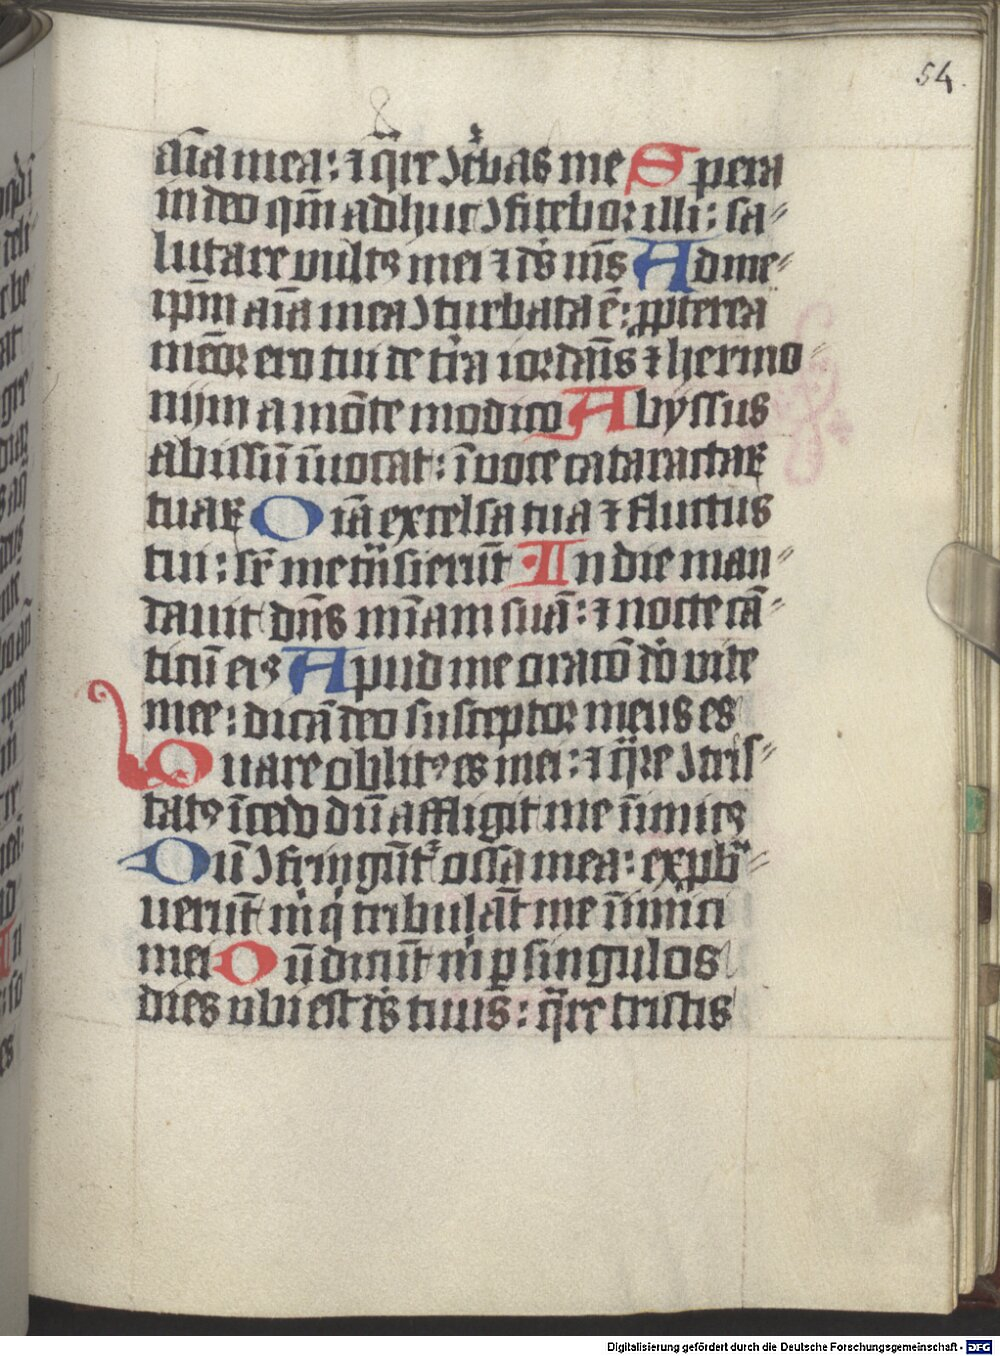 54
aīa mea : ⁊ q̄re ꝯt͛bas me Spera
in deo qm̄ adhuc ꝯfitebor illi : sa〃
lutare vultꝰ mei ⁊ ds̄ me͞s Ad me〃
ipm̄ aīa mea ꝯturbata ē : ꝓpterea
mēor ero tui de tͥra iordan̄s ⁊ hermo〃
nijm a mōte modico Abyssus
abissū īuocat : ī voce cataractaꝝ
tuaꝝ Oīa excelsa tua ⁊ fluctus
tui : sꝑ me tͣnsierūt In die man〃
dauit dn̄s mīam suā : ⁊ nocte cā〃
ticū eiꝰ Apud me oratō dō vite
mee : dicā deo susceptor meus es
Quare oblitꝰ es mei : ⁊ q̄re ꝯtris〃
tatꝰ īcedo dū affligit me īimicꝰ
Dū ꝯfringūtͬ ossa mea : expͬb〃
uerūt m̄ qͥ tribulāt me īimici
mei Dū dicūt m̄ ꝑ singulos
dies vbi est ds̄ tuus : q̄re tristis
Digitalisierung gefördert durch die Deutsche Forschungsgemeinschaft - DFG